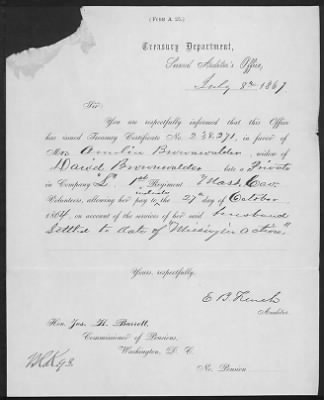 (FORM A 25.)
Treasury Department,
Second Auditor's Office,
July 8th 1867
Sir:
You are respectfully informed that this Office
has issued Treasury Certificate No. 238,271, in favor of
Mrs Amelia Brownwalder, widow of
David Brownwalder late a Private
in Company "L" 1st Regiment Mass. Cav.
Volunteers, allowing her pay to include the 27th day of October
1864, on account of the services of her said husband
Settled to date of "Missing in action"
Yours, respectfully,
E B French
Auditor.
Hon. Jos. H. Barrett,
Commissioner of Pensions,
Washington, D. C.
No. Pension